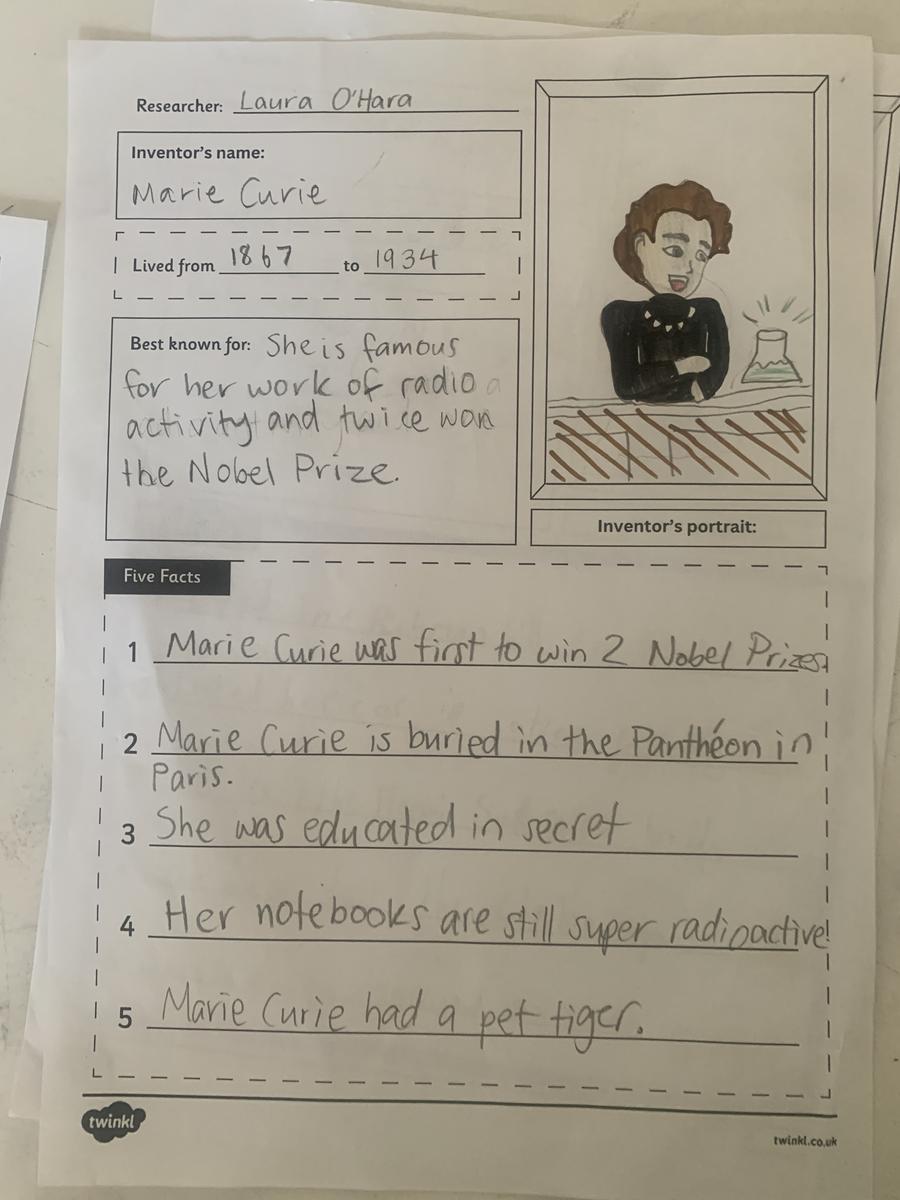 Researcher: Laura O'Hara
Inventor's name:
Marie Curie
Lived from 1867 to 1934
Best known for: She is famous
for her work of radio
activity and twice won
the Nobel Prize.
Inventor's portrait:
Five Facts
1 Marie Curie was first to win 2 Nobel Prizes.
2 Marie Curie is buried in the Panthéon in
Paris.
3 She was educated in secret
4 Her notebooks are still super radioactive!
5 Marie Curie had a pet tiger.
twinkl
twinkl.co.uk